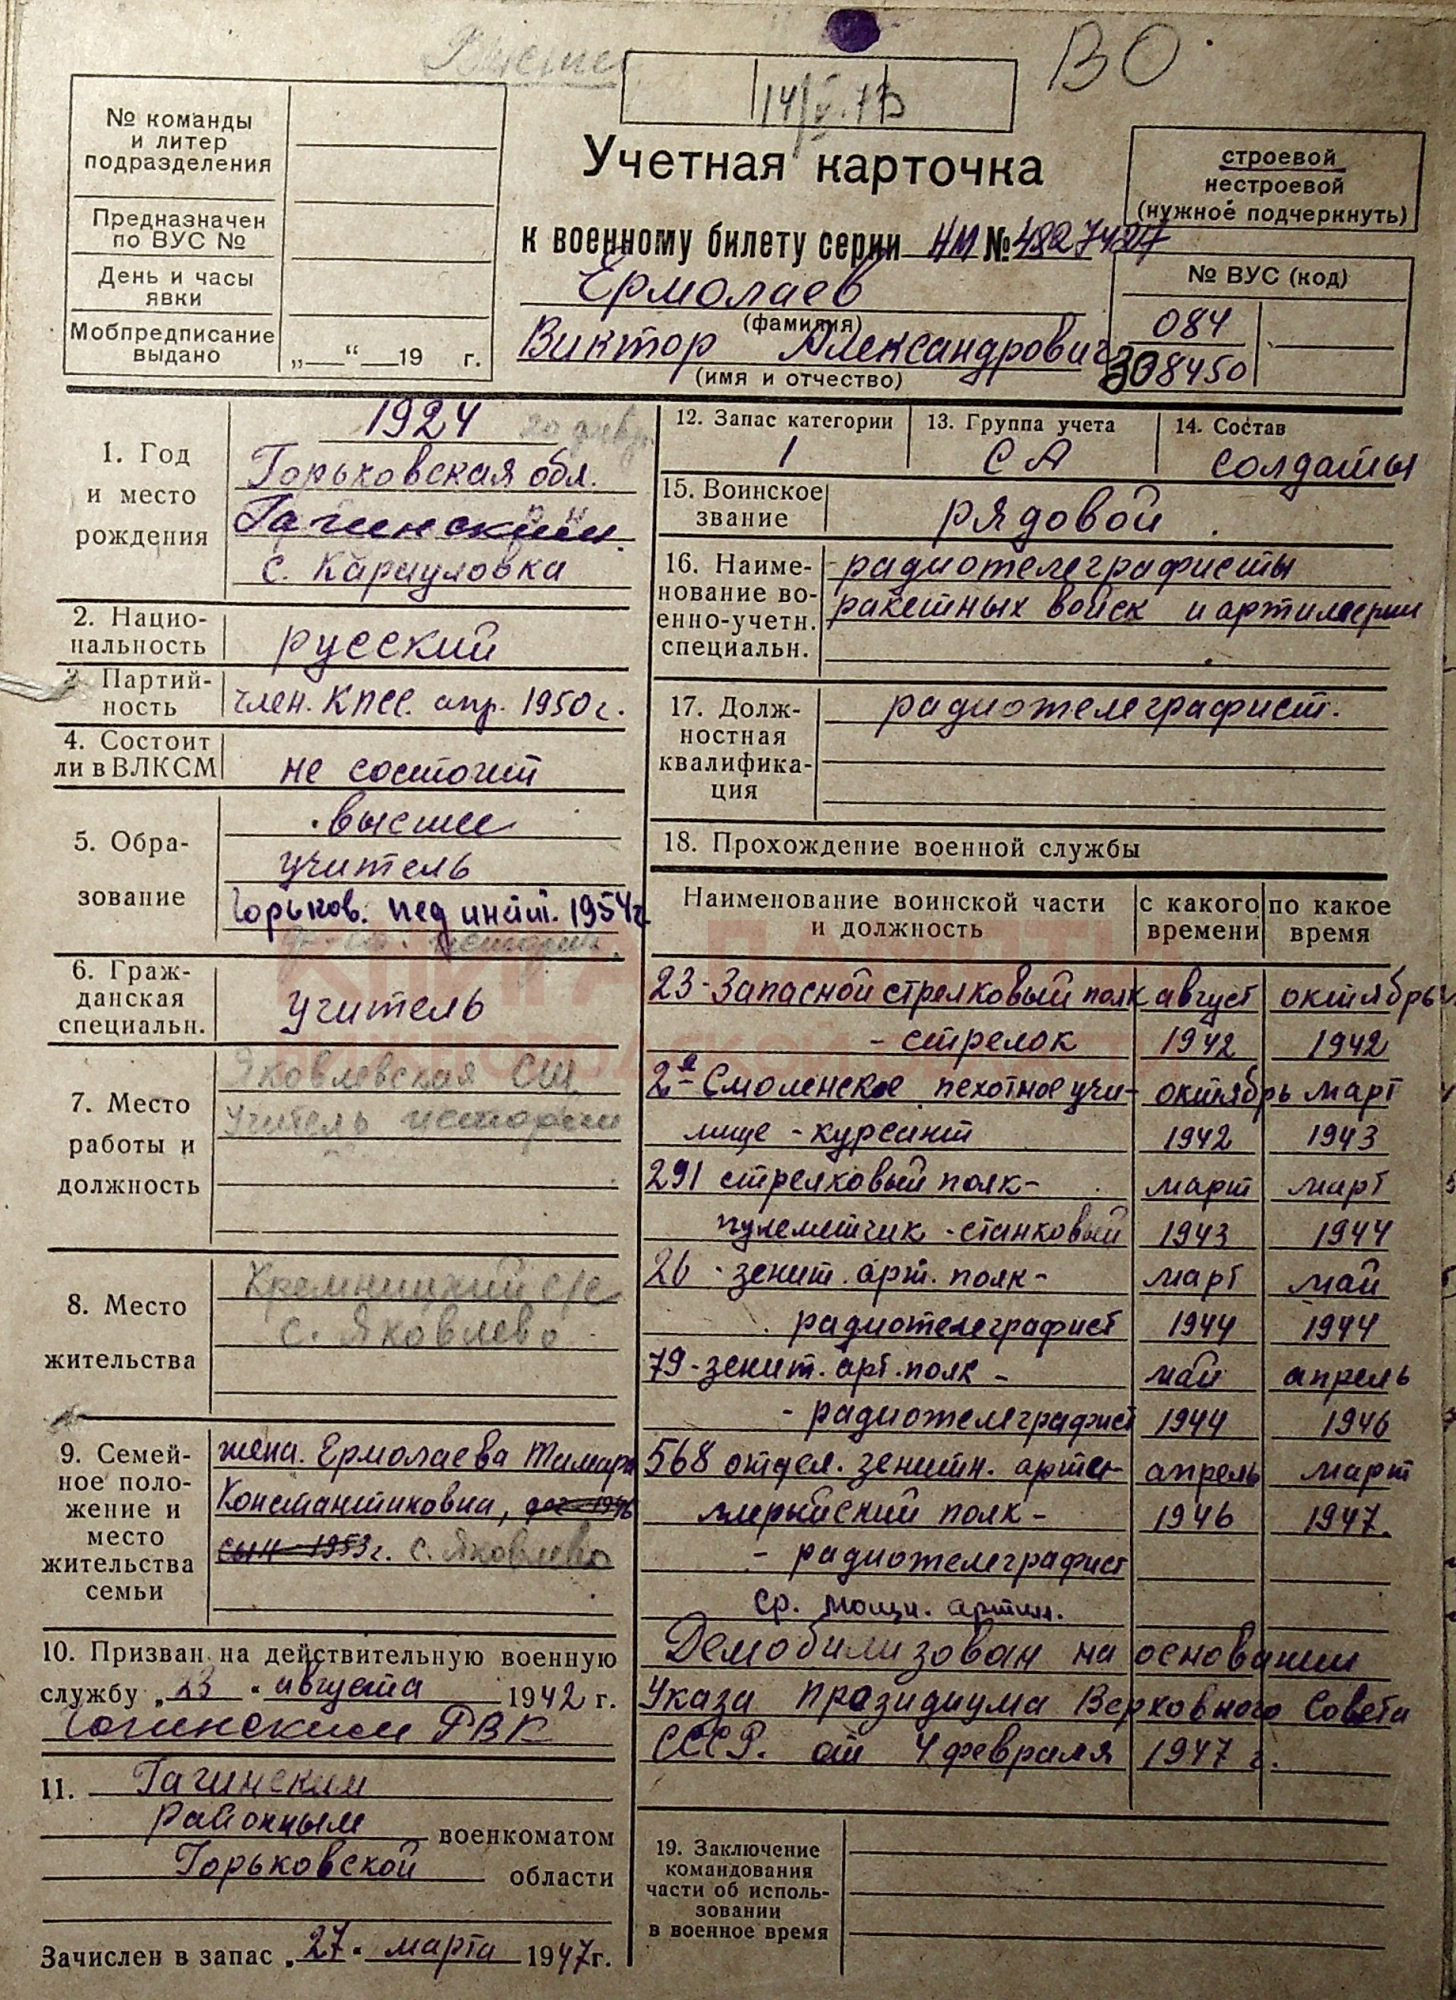 Высшее
ВО
14/V.77
№ команды
и литер
подразделения
Предназначен
по ВУС №
День и часы
явки
Мобпредписание
выдано
„ “ 19 г.
Учетная карточка
к военному билету серии НМ № 4827427
Ермолаев
(фамилия)
Виктор Александрович
(имя и отчество)
строевой
нестроевой
(нужное подчеркнуть)
№ ВУС (код)
084
308450
1. Год
и место
рождения
1924
Горьковская обл.
Гагинский
с. Карауловка
2. Нацио-
нальность
русский
3. Партий-
ность
член. КПСС. апр. 1950 г.
4. Состоит
ли в ВЛКСМ
не состоит
5. Обра-
зование
высшее
учитель
Горьков. пед инст. 1954г
ф-т. истории
6. Граж-
данская
специальн.
учитель
7. Место
работы и
должность
Яковлевская СШ
Учитель истории
8. Место
жительства
Кремницкий с/с
с. Яковлево
9. Семей-
ное поло-
жение и
место
жительства
семьи
жена. Ермолаева Тамара
Константиновна, 1946
сын-1953г. с. Яковлево
10. Призван на действительную военную
службу „23“ августа 1942 г.
Гагинским РВК
11. Гагинским
районным военкоматом
Горьковской области
Зачислен в запас „27“ марта 1947 г.
12. Запас категории
1
13. Группа учета
СА
14. Состав
солдаты
15. Воинское
звание
рядовой
16. Наиме-
нование во-
енно-учетн.
специальн.
радиотелеграфисты
ракетных войск и артиллерии
17. Долж-
ностная
квалифика-
ция
радиотелеграфист.
18. Прохождение военной службы
Наименование воинской части
и должность
с какого
времени
по какое
время
23-Запасной стрелковый полк август октябрь
- стрелок 1942 1942
2-я Смоленское пехотное учи- октябрь март
лище - курсант 1942 1943
291 стрелковый полк- март март
пулеметчик-станковый 1943 1944
26-зенит. арт. полк- март май
радиотелеграфист 1944 1944
79-зенит. арт. полк - май апрель
- радиотелеграфист 1944 1946
568 отдел. зенитн. арти- апрель март
лерийский полк - 1946 1947.
- радиотелеграфист
ср. мощн. артил.
Демобилизован на основании
Указа Президиума Верховного Совета
СССР. от 4 февраля 1947 г.
19. Заключение
командования
части об исполь-
зовании
в военное время
КНИГА ПАМЯТИ
НИЖЕГОРОДСКОЙ ОБЛАСТИ